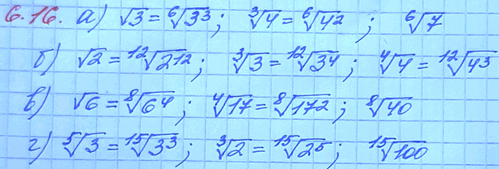 6.16. а) √3 = ⁶√3³; ³√4 = ⁶√4²; ⁶√7
б) √2 = ¹²√2¹²; ³√3 = ¹²√3⁴; ⁴√4 = ¹²√4³
в) √6 = ⁸√6⁴; ⁴√17 = ⁸√17²; ⁸√40
г) ⁵√3 = ¹⁵√3³; ³√2 = ¹⁵√2⁵; ¹⁵√100